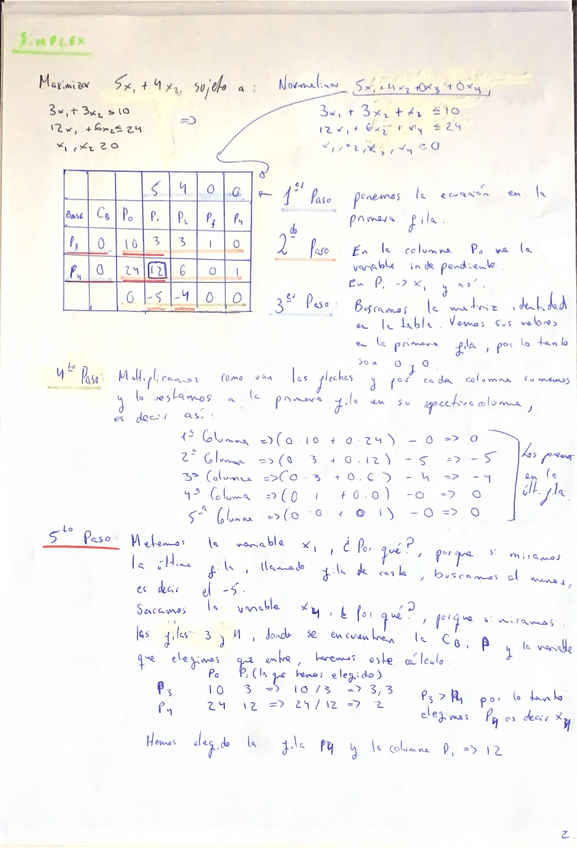 SIMPLEX
Maximizar 5x₁ + 4x₂, sujeto a: Normalizar 5x₁+4x₂+0x₃+0x₄
3x₁ + 3x₂ ≤ 10 3x₁ + 3x₂ + x₃ ≤ 10
12x₁ + 6x₂ ≤ 24 => 12x₁ + 6x₂ + x₄ ≤ 24
x₁, x₂ ≥ 0 x₁, x₂, x₃, x₄ = 0
5 4 0 0
Base C_B P₀ P₁ P₂ P₃ P₄
P₃ 0 10 3 3 1 0
P₄ 0 24 12 6 0 1
0 -5 -4 0 0
1er Paso: ponemos la ecuación en la
primera fila.
2do Paso: En la columna P₀ va la
variable independiente.
En P₁ -> x₁ y así.
3er Paso: Buscamos la matriz identidad
en la tabla. Vemos sus valores
en la primera fila, por lo tanto
son 0 y 0.
4to Paso: Multiplicamos como van las flechas y por cada columna sumamos
y lo restamos a la primera fila en su columna,
es decir así:
1ª Columna => (0·10 + 0·24) - 0 => 0
2ª Columna => (0·3 + 0·12) - 5 => -5
3ª Columna => (0·3 + 0·6) - 4 => -4
4ª Columna => (0·1 + 0·0) - 0 => 0
5ª Columna => (0·0 + 0·1) - 0 => 0
Los ponemos
en la
últ. fila.
5to Paso: Metemos la variable x₁, ¿Por qué?, porque si miramos
la última fila, llamada fila de coste, buscamos el menor,
es decir el -5.
Sacamos la variable x₄, ¿Por qué?, porque si miramos
las filas 3 y 4, donde se encuentran la C_B, P y la variable
que elegimos que entre, haremos este cálculo.
P₀ P₁ (la que hemos elegido)
P₃ 10 3 => 10/3 => 3,3
P₄ 24 12 => 24/12 => 2
P₃ > P₄ por lo tanto
elegimos P₄ es decir x₄
Hemos elegido la fila P₄ y la columna P₁ => 12
2.